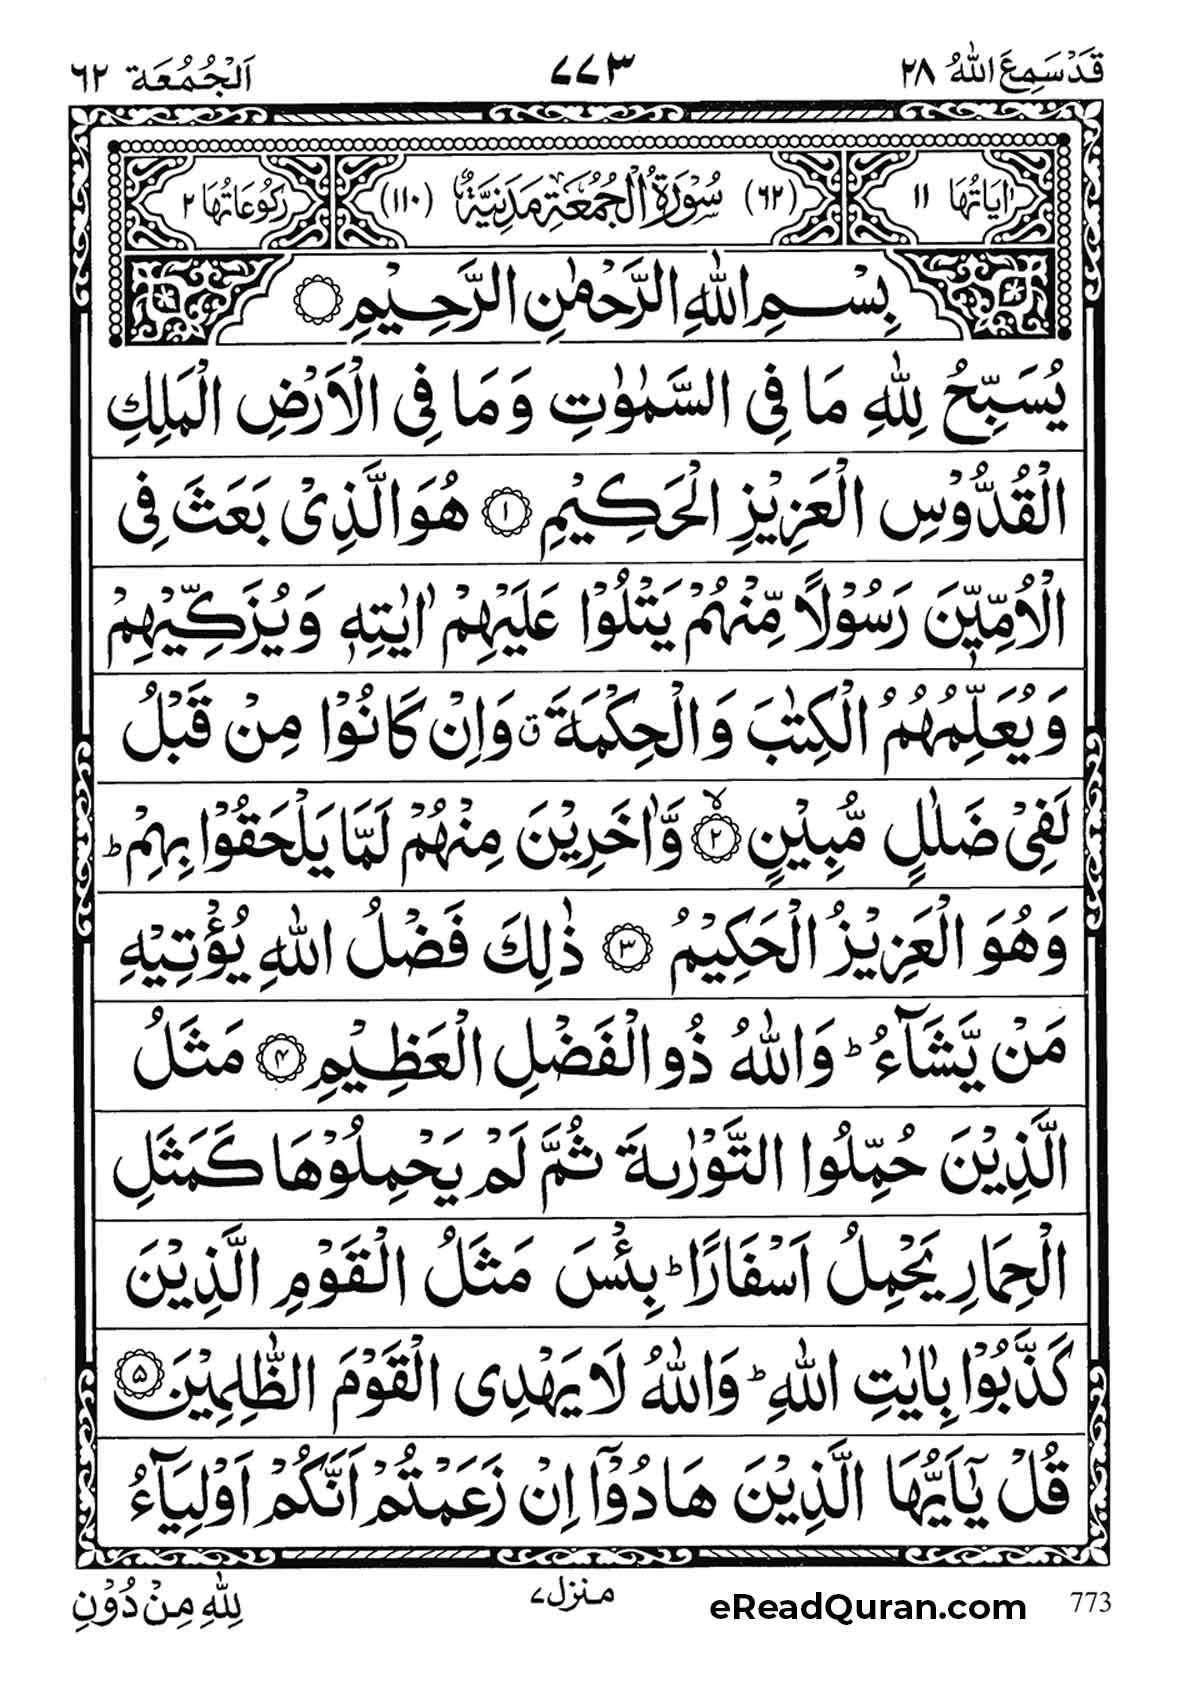 قَدْ سَمِعَ اللّٰهُ ٢٨ ٧٧٣ اَلْجُمُعَة ٦٢
اٰيَاتُهَا ١١ (٦٢) سُوْرَةُ الْجُمُعَةِ مَدَنِيَّةٌ (١١٠) رُكُوْعَاتُهَا ٢
بِسْمِ اللّٰهِ الرَّحْمٰنِ الرَّحِيْمِ ۝
يُسَبِّحُ لِلّٰهِ مَا فِى السَّمٰوٰتِ وَمَا فِى الْاَرْضِ الْمَلِكِ
الْقُدُّوْسِ الْعَزِيْزِ الْحَكِيْمِ ۝١ هُوَ الَّذِىْ بَعَثَ فِى
الْاُمِّيّٖنَ رَسُوْلًا مِّنْهُمْ يَتْلُوْا عَلَيْهِمْ اٰيٰتِهٖ وَيُزَكِّيْهِمْ
وَيُعَلِّمُهُمُ الْكِتٰبَ وَالْحِكْمَةَ ق وَاِنْ كَانُوْا مِنْ قَبْلُ
لَفِىْ ضَلٰلٍ مُّبِيْنٍ ۙ۝٢ وَّاٰخَرِيْنَ مِنْهُمْ لَمَّا يَلْحَقُوْا بِهِمْ ؕ
وَهُوَ الْعَزِيْزُ الْحَكِيْمُ ۝٣ ذٰلِكَ فَضْلُ اللّٰهِ يُؤْتِيْهِ
مَنْ يَّشَآءُ ؕ وَاللّٰهُ ذُو الْفَضْلِ الْعَظِيْمِ ۝٤ مَثَلُ
الَّذِيْنَ حُمِّلُوا التَّوْرٰىةَ ثُمَّ لَمْ يَحْمِلُوْهَا كَمَثَلِ
الْحِمَارِ يَحْمِلُ اَسْفَارًا ؕ بِئْسَ مَثَلُ الْقَوْمِ الَّذِيْنَ
كَذَّبُوْا بِاٰيٰتِ اللّٰهِ ؕ وَاللّٰهُ لَا يَهْدِى الْقَوْمَ الظّٰلِمِيْنَ ۝٥
قُلْ يٰٓاَيُّهَا الَّذِيْنَ هَادُوْٓا اِنْ زَعَمْتُمْ اَنَّكُمْ اَوْلِيَآءُ
773 eReadQuran.com منزل ٧ لِلّٰهِ مِنْ دُوْنِ